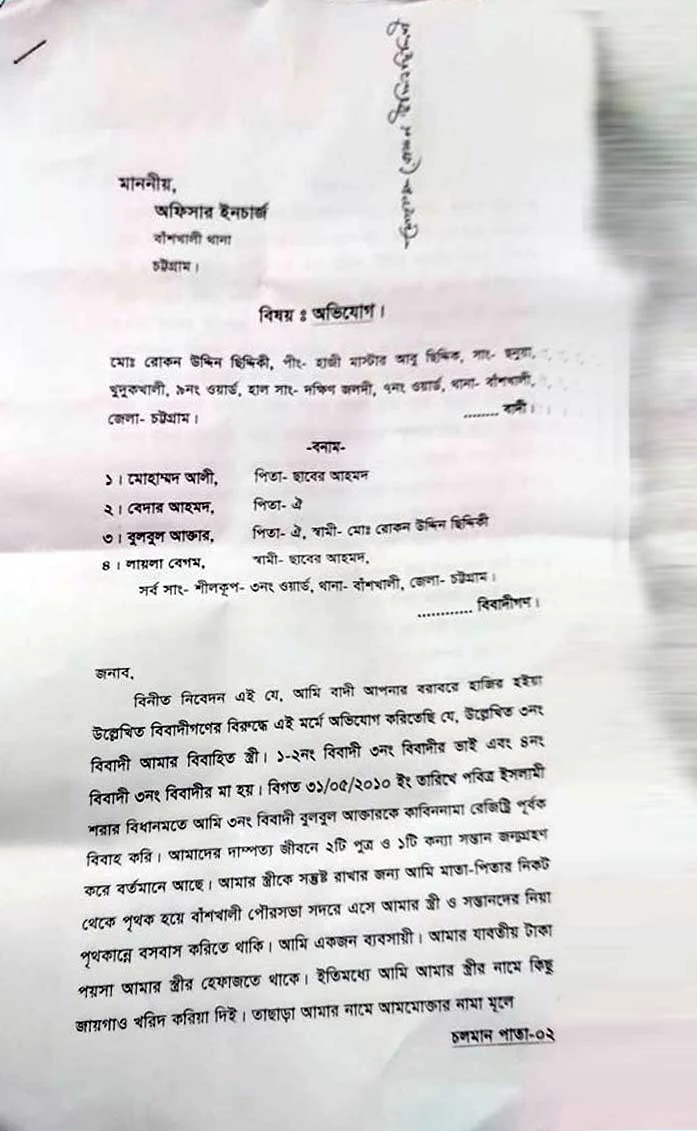 মাননীয়,
অফিসার ইনচার্জ
বাঁশখালী থানা
চট্টগ্রাম।
বিষয় ঃ অভিযোগ।
মোঃ রোকন উদ্দিন ছিদ্দিকী, পীং- হাজী মাস্টার আবু ছিদ্দিক, সাং- ছনুয়া,
খুদুকখালী, ৯নং ওয়ার্ড, হাল সাং- দক্ষিণ জলদী, ৭নং ওয়ার্ড, থানা- বাঁশখালী,
জেলা- চট্টগ্রাম।
........ বাদী।
-বনাম-
১। মোহাম্মদ আলী, পিতা- ছাবের আহমদ
২। বেদার আহমদ, পিতা- ঐ
৩। বুলবুল আক্তার, পিতা- ঐ, স্বামী- মোঃ রোকন উদ্দিন ছিদ্দিকী
৪। লায়লা বেগম, স্বামী- ছাবের আহমদ,
সর্ব সাং- শীলকূপ- ৩নং ওয়ার্ড, থানা- বাঁশখালী, জেলা- চট্টগ্রাম।
............ বিবাদীগন।
জনাব,
বিনীত নিবেদন এই যে, আমি বাদী আপনার বরাবরে হাজির হইয়া
উল্লেখিত বিবাদীগণের বিরুদ্ধে এই মর্মে অভিযোগ করিতেছি যে, উল্লেখিত ৩নং
বিবাদী আমার বিবাহিত স্ত্রী। ১-২নং বিবাদী ৩নং বিবাদীর ভাই এবং ৪নং
বিবাদী ৩নং বিবাদীর মা হয়। বিগত ৩১/০৫/২০১০ ইং তারিখে পবিত্র ইসলামী
শরার বিধানমতে আমি ৩নং বিবাদী বুলবুল আক্তারকে কাবিননামা রেজিষ্ট্রি পূর্বক
বিবাহ করি। আমাদের দাম্পত্য জীবনে ২টি পুত্র ও ১টি কন্যা সন্তান জন্মগ্রহণ
করে বর্তমানে আছে। আমার স্ত্রীকে সন্তুষ্ট রাখার জন্য আমি মাতা-পিতার নিকট
থেকে পৃথক হয়ে বাঁশখালী পৌরসভা সদরে এসে আমার স্ত্রী ও সন্তানদের নিয়া
পৃথকান্নে বসবাস করিতে থাকি। আমি একজন ব্যবসায়ী। আমার যাবতীয় টাকা
পয়সা আমার স্ত্রীর হেফাজতে থাকে। ইতিমধ্যে আমি আমার স্ত্রীর নামে কিছু
জায়গাও খরিদ করিয়া দিই। তাছাড়া আমার নামে আমমোক্তার নামা মূলে
চলমান পাতা-০২